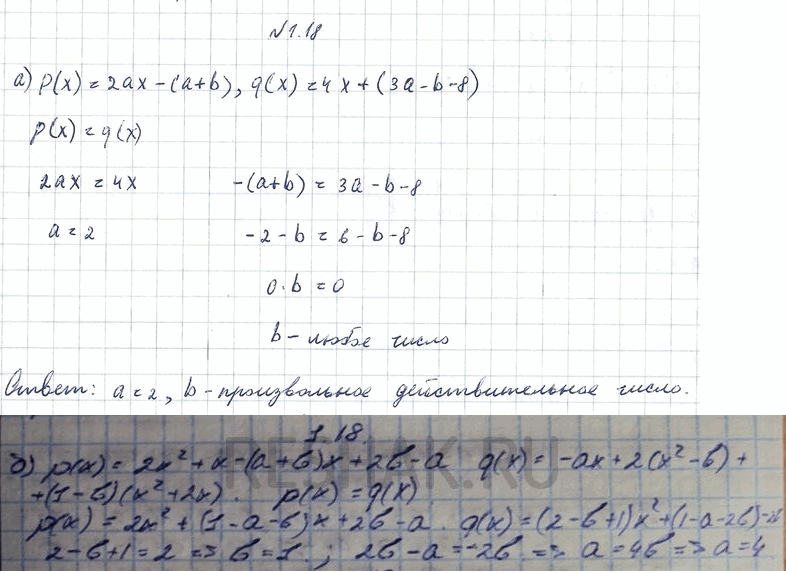 №1.18
а) p(x) = 2ax - (a+b), q(x) = 4x + (3a - b - 8)
p(x) = q(x)
2ax = 4x -(a+b) = 3a - b - 8
a = 2 -2 - b = 6 - b - 8
0·b = 0
b - любое число
Ответ: a = 2, b - произвольное действительное число.
1.18
RESHAK.RU
б) p(x) = 2x² + x - (a+b)x + 2b - a q(x) = -ax + 2(x² - b) +
+ (1 - b)(x² + 2x). p(x) = q(x)
p(x) = 2x² + (1 - a - b)x + 2b - a. q(x) = (2 - b + 1)x² + (1 - a - 2b)
2 - b + 1 = 2 => b = 1. ; 2b - a = -2b => a = 4b => a = 4